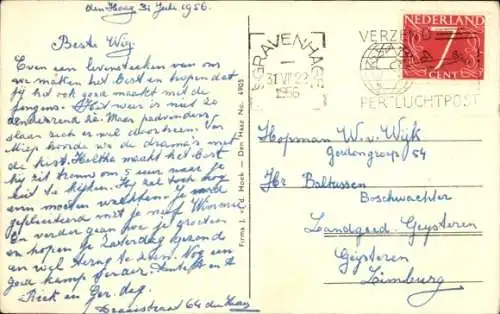 den Haag 31 Juli 1956.
Beste Wiy.
Even een levensteeken van ons
we maken het best en hopen dat
jij het ook goed maakt met de
jongens. Het weer is niet zo
denderend hè. Maar padvinders
slaan zich er wel doorheen. Van
Miep hoorde we de drama's met
de kist. Holtke maakt het best
hij zit trouw om 5 uur naar je
uit te kijken. Hij zal toch nog
even moeten wachten. Je word
gefeliciteerd met je neef
En verder gaan hoe je groeten
en hopen je Zaterdag gezond
en wel terug te zien. Nog een
goed kamp verder.
Riek en Ger. dag.
64 den Haag
Firma J. v/d Hoek - Den Haag No. 4905
'S GRAVENHAGE
31 VII 22
1956
VERZEND
PER LUCHTPOST
NEDERLAND
7
CENT
Hopman W. v. Wijk
54
Hr Baltussen
Boschwachter
Landgoed Geysteren
Geysteren
Limburg